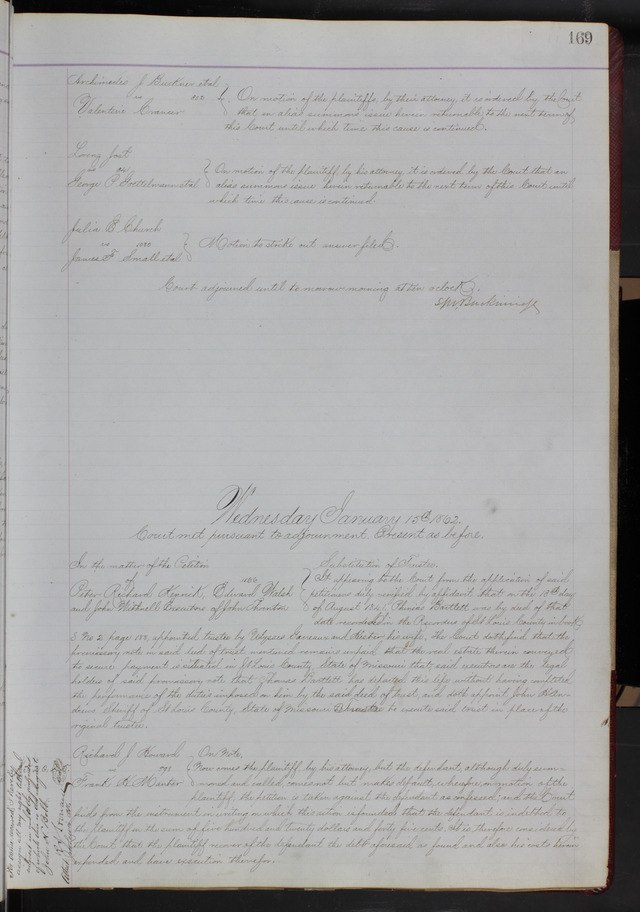 169
Archimedes J. Buckner et al
vs
Valentine
On motion of the plaintiffs, by their attorney, it is ordered by the Court
that an alias summons issue herein returnable to the next term of
this Court until which time this cause is continued.
Loring
vs
George P. et al
On motion of the plaintiff by his attorney it is ordered by the Court that an
alias summons issue herein returnable to the next term of this Court until
which time this cause is continued.
Julia E. Church
vs
James F. Small et al
Motion to strike out answer filed.
Court adjourned until to morrow morning at ten o'clock.
Wednesday January 15th 1862.
Court met pursuant to adjournment Present as before.
In the matter of the Petition
of
Peter Richard Kenrick, Edward Walsh
and John Withnell Executors of John Thornton
Substitution of Trustee.
It appearing to the Court from the application of said
petitioners duly verified by affidavit that on the day
of August Thomas Bartlett was by deed of that
date recorded in the Recorders of St Louis County in book
S No 2 page appointed trustee by Ulysse and his wife, the Court doth find that the
promissory note in said deed of trust mentioned remains unpaid that the real estate therein conveyed
to secure payment is situated in St Louis County State of Missouri that said executors are the legal
holders of said promissory note that Thomas Bartlett has departed this life without having
the performance of the duties imposed on him by the said deed of trust and doth appoint John H An-
drews Sheriff of St Louis County, State of Missouri Trustee to execute said trust in place of the
original trustee.
Richard J. Howard
vs
Frank R.
On Note.
Now comes the plaintiff by his attorney, but the defendant, although duly sum-
moned and called, comes not but makes default, wherefore on motion of the
plaintiff, the petition is taken against the defendant as confessed; and the Court
finds from the instrument in writing on which this action is founded that the defendant is indebted to
the plaintiff in the sum of five hundred and twenty dollars and forty five cents. It is therefore considered by
the Court that the plaintiff recover of the defendant the debt aforesaid as found and also his costs herein
expended and have execution therefor.